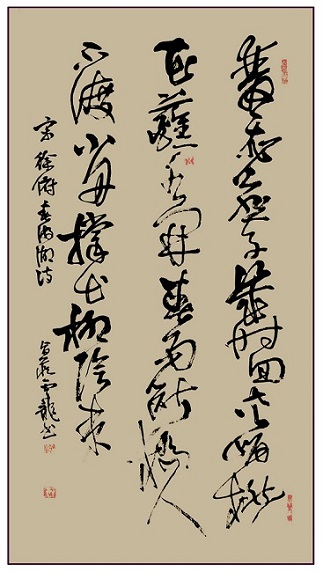 雙飛燕子幾时回夾岸桃
花蘸水開春雨断橋人
不渡小舟撑出柳陰来
宋徐俯春游湖诗
雲龍书